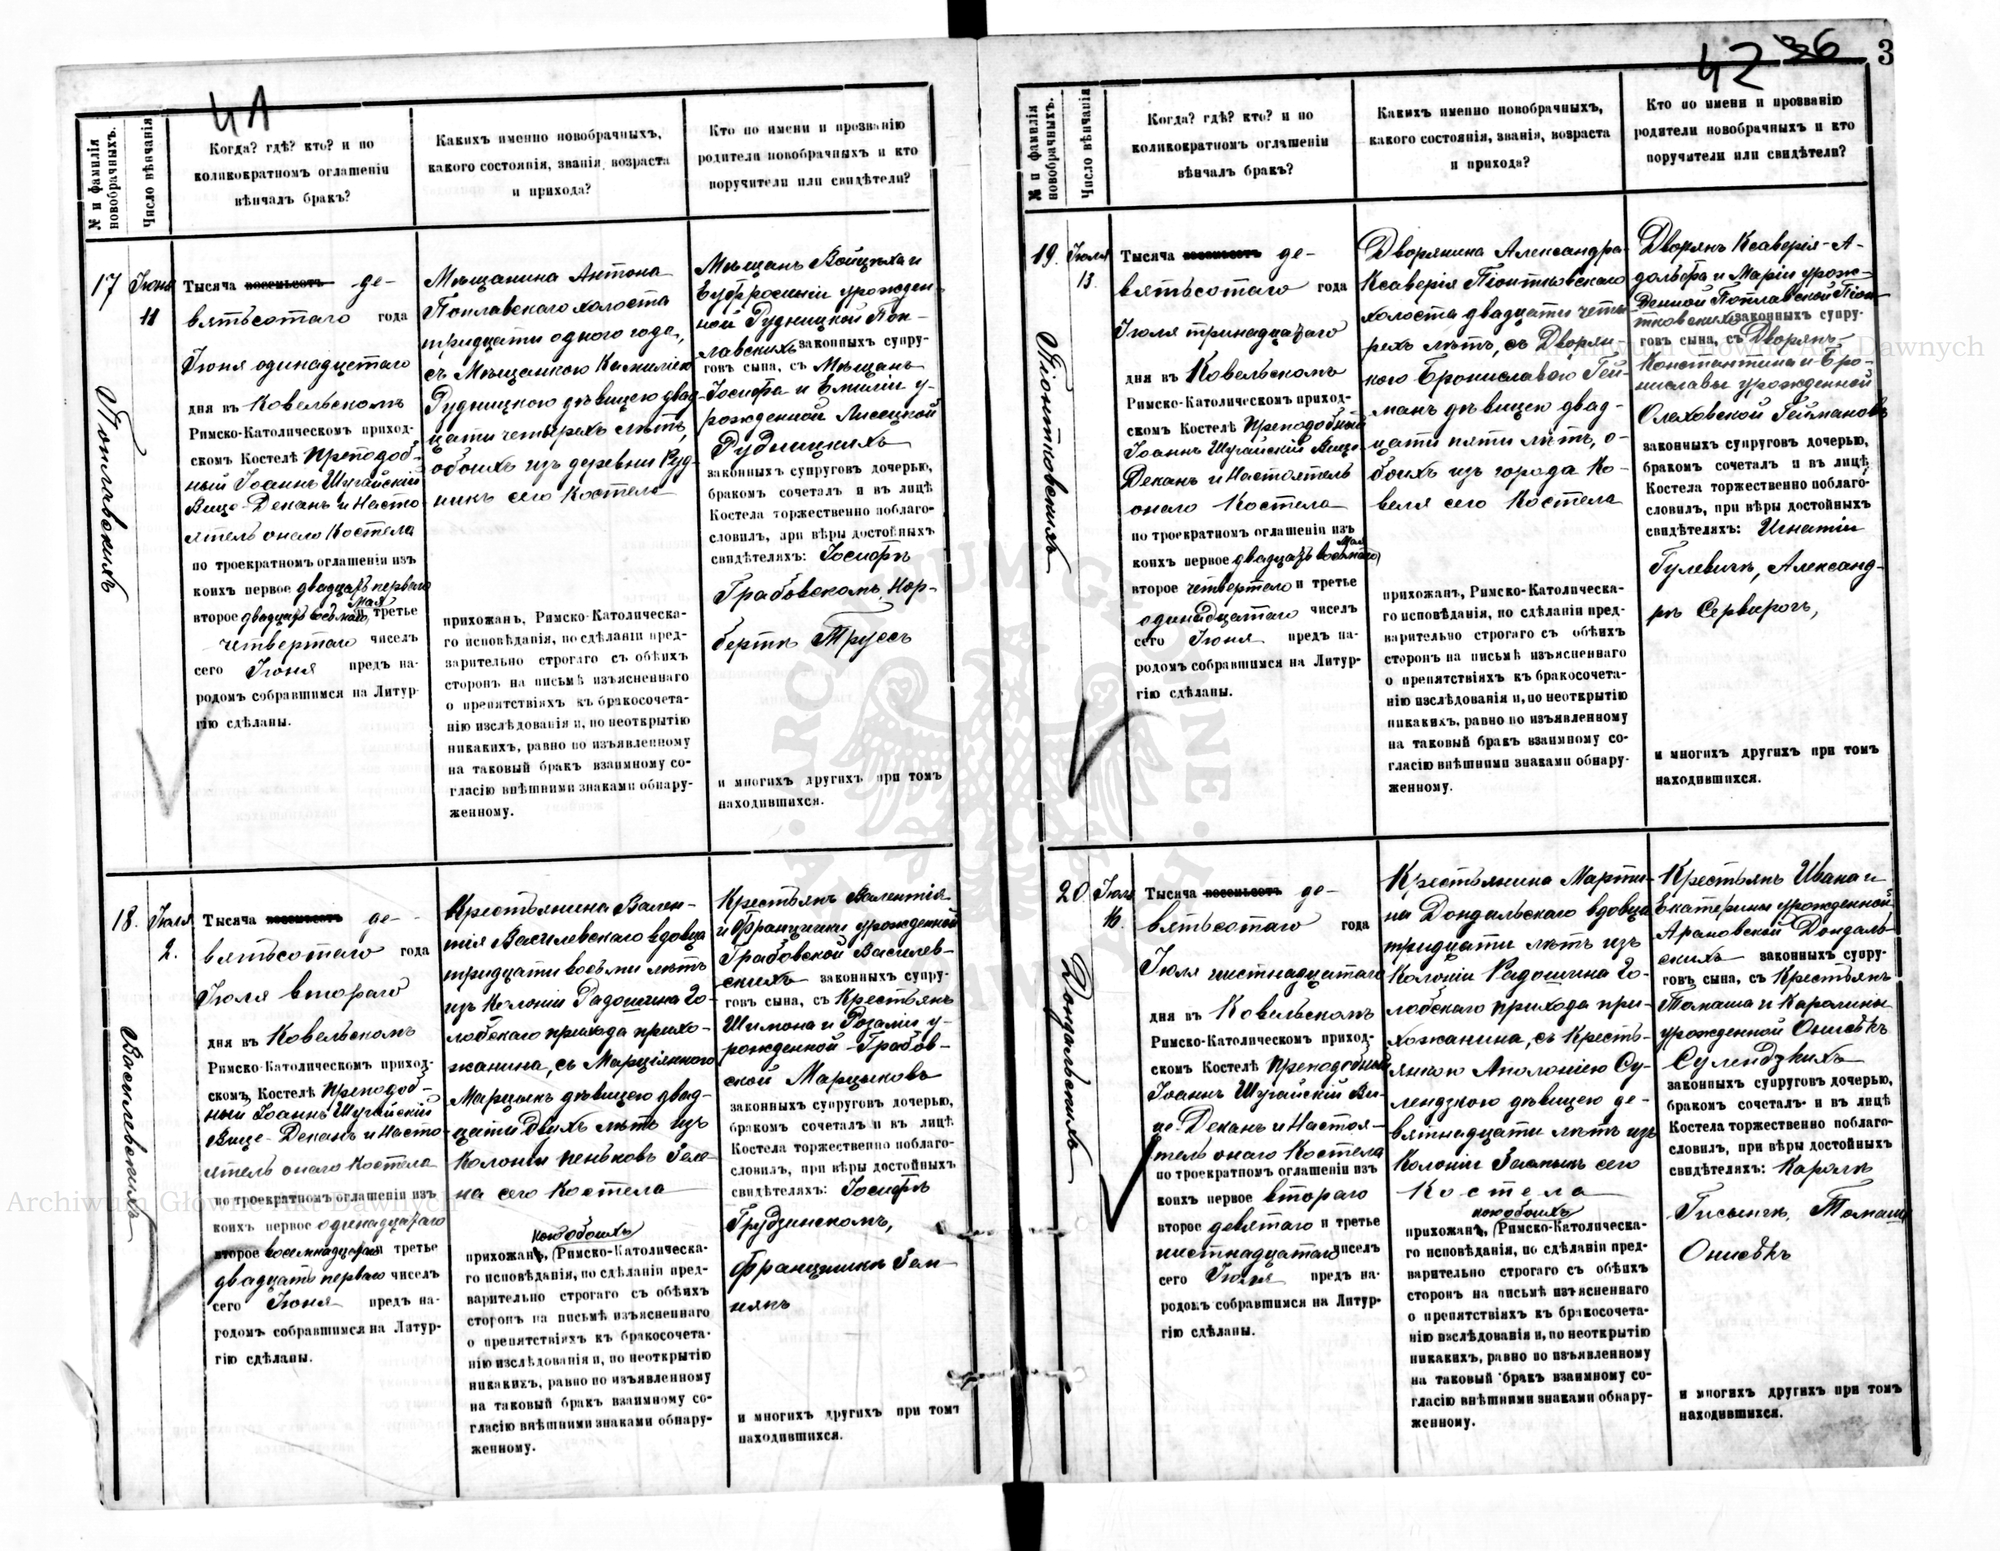 41
№ и фамилія новобрачныхъ.
Число вѣнчанія
Когда? гдѣ? кто? и по
коликократномъ оглашеніи
вѣнчалъ бракъ?
Какихъ именно новобрачныхъ,
какого состоянія, званія, возраста
и прихода?
Кто по имени и прозванію
родители новобрачныхъ и кто
поручители или свидѣтели?
17
Поплавскихъ
Іюня
11
Тысяча восемьсотъ де-
вятьсотаго года
Іюня одинадцатаго
дня въ Ковельскомъ
Римско-Католическомъ приход-
скомъ Костелѣ Преподоб-
ный Іоаннъ Шугайскій
Вице-Деканъ и Насто-
ятель онаго Костела
по троекратномъ оглашеніи изъ
коихъ первое двадцать перваго
второе двадцать восьмаго Мая и третье
четвертаго чиселъ
сего Іюня предъ на-
родомъ собравшимся на Литур-
гію сдѣланы.
Мѣщанина Антона
Поплавскаго холоста
тридцати одного года,
съ Мѣщанкою Камилію
Рудницкою дѣвицею двад-
цати четырехъ лѣтъ,
обоихъ изъ деревни Руд-
никъ сего Костела
прихожанъ, Римско-Католическа-
го исповѣданія, по сдѣланіи пред-
варительно строгаго съ обѣихъ
сторонъ на письмѣ изъясненнаго
о препятствіяхъ къ бракосочета-
нію изслѣдованія и, по неоткрытію
никакихъ, равно по изъявленному
на таковый бракъ взаимному со-
гласію внѣшними знаками обнару-
женному.
Мѣщанъ Войцѣха и
Еуфросиніи урожден-
ной Рудницкой Поп-
лавскихъ законныхъ супру-
говъ сына, съ Мѣщанъ
Іосифа и Емиліи у-
рожденной Лисецкой
Рудницкихъ
законныхъ супруговъ дочерью,
бракомъ сочеталъ и въ лицѣ
Костела торжественно поблаго-
словилъ, при вѣры достойныхъ
свидѣтеляхъ: Іосифѣ
Грабовскомъ, Нор-
бертѣ Труссъ
и многихъ другихъ при томъ
находившихся.
18.
Василевскихъ
Іюля
2.
Тысяча восемьсотъ де-
вятьсотаго года
Іюля втораго
дня въ Ковельскомъ
Римско-Католическомъ приход-
скомъ Костелѣ Преподоб-
ный Іоаннъ Шугайскій
Вице-Деканъ и Насто-
ятель онаго Костела
по троекратномъ оглашеніи изъ
коихъ первое одинадцатаго
второе восемнадцатаго и третье
двадцать перваго чиселъ
сего Іюня предъ на-
родомъ собравшимся на Литур-
гію сдѣланы.
Крестьянина Вален-
тія Василевскаго вдовца
тридцати восьми лѣтъ
изъ Колоніи Радошина Го-
лобскаго прихода прихо-
жанина, съ Марціянною
Марцыкъ дѣвицею двад-
цати двухъ лѣтъ изъ
Колоніи Пеньковъ Геле-
на сего Костела
кои обоихъ
прихожанъ, Римско-Католическа-
го исповѣданія, по сдѣланіи пред-
варительно строгаго съ обѣихъ
сторонъ на письмѣ изъясненнаго
о препятствіяхъ къ бракосочета-
нію изслѣдованія и, по неоткрытію
никакихъ, равно по изъявленному
на таковый бракъ взаимному со-
гласію внѣшними знаками обнару-
женному.
Крестьянъ Валентія
и Францишки урожденной
Грабовской Василев-
скихъ законныхъ супру-
говъ сына, съ Крестьянъ
Шимона и Розаліи у-
рожденной Грабов-
ской Марцыковъ
законныхъ супруговъ дочерью,
бракомъ сочеталъ и въ лицѣ
Костела торжественно поблаго-
словилъ, при вѣры достойныхъ
свидѣтеляхъ: Іосифѣ
Грудзинскомъ,
Францишкѣ Ган-
някъ
и многихъ другихъ при томъ
находившихся.
42 36 3
№ и фамилія новобрачныхъ.
Число вѣнчанія
Когда? гдѣ? кто? и по
коликократномъ оглашеніи
вѣнчалъ бракъ?
Какихъ именно новобрачныхъ,
какого состоянія, званія, возраста
и прихода?
Кто по имени и прозванію
родители новобрачныхъ и кто
поручители или свидѣтели?
19.
Піонтковскихъ
Іюля
13.
Тысяча восемьсотъ де-
вятьсотаго года
Іюля тринадцатаго
дня въ Ковельскомъ
Римско-Католическомъ приход-
скомъ Костелѣ Преподобный
Іоаннъ Шугайскій Вице-
Деканъ и Настоятель
онаго Костела
по троекратномъ оглашеніи изъ
коихъ первое двадцать восьмаго Мая,
второе четвертаго и третье
одинадцатаго чиселъ
сего Іюня предъ на-
родомъ собравшимся на Литур-
гію сдѣланы.
Дворянина Александра-
Ксаверія Піонтковскаго
холоста двадцати четы-
рехъ лѣтъ, съ Дворян-
кою Брониславою Гей-
манъ дѣвицею двад-
цати пяти лѣтъ, о-
боихъ изъ города Ко-
веля сего Костела
прихожанъ, Римско-Католическа-
го исповѣданія, по сдѣланіи пред-
варительно строгаго съ обѣихъ
сторонъ на письмѣ изъясненнаго
о препятствіяхъ къ бракосочета-
нію изслѣдованія и, по неоткрытію
никакихъ, равно по изъявленному
на таковый бракъ взаимному со-
гласію внѣшними знаками обнару-
женному.
Дворянъ Ксаверія-А-
дольфа и Маріи урож-
денной Поплавской Піон-
тковскихъ законныхъ супру-
говъ сына, съ Дворянъ
Константина и Бро-
ниславы урожденной
Олаховской Геймановъ
законныхъ супруговъ дочерью,
бракомъ сочеталъ и въ лицѣ
Костела торжественно поблаго-
словилъ, при вѣры достойныхъ
свидѣтеляхъ: Игнатіи
Гулевичъ, Александ-
рѣ Сервирогъ,
и многихъ другихъ при томъ
находившихся.
20
Дондальскихъ
Іюля
16.
Тысяча восемьсотъ де-
вятьсотаго года
Іюля шестнадцатаго
дня въ Ковельскомъ
Римско-Католическомъ приход-
скомъ Костелѣ Преподобный
Іоаннъ Шугайскій Ви-
це-Деканъ и Настоя-
тель онаго Костела
по троекратномъ оглашеніи изъ
коихъ первое втораго
второе девятаго и третье
шестнадцатаго чиселъ
сего Іюля предъ на-
родомъ собравшимся на Литур-
гію сдѣланы.
Крестьянина Марти-
на Дондальскаго вдовца
тридцати лѣтъ изъ
Колоніи Радошина Го-
лобскаго прихода при-
хожанина, съ Кресть-
янкою Аполоніею Су-
лендзкою дѣвицею де-
вятнадцати лѣтъ изъ
Колоніи Засмыкъ сего
Костела
кои обоихъ
прихожанъ, Римско-Католическа-
го исповѣданія, по сдѣланіи пред-
варительно строгаго съ обѣихъ
сторонъ на письмѣ изъясненнаго
о препятствіяхъ къ бракосочета-
нію изслѣдованія и, по неоткрытію
никакихъ, равно по изъявленному
на таковый бракъ взаимному со-
гласію внѣшними знаками обнару-
женному.
Крестьянъ Ивана и
Екатерины урожденной
Арановской Дондаль-
скихъ законныхъ супру-
говъ сына, съ Крестьянъ
Томаша и Каролины
урожденной Онисѣкъ
Сулендзкихъ
законныхъ супруговъ дочерью,
бракомъ сочеталъ и въ лицѣ
Костела торжественно поблаго-
словилъ, при вѣры достойныхъ
свидѣтеляхъ: Каролѣ
Гисынгѣ, Томашѣ
Онисѣкъ
и многихъ другихъ при томъ
находившихся.
Archiwum Główne Akt Dawnych
Archiwum Główne Akt Dawnych
ARCHIWUM GŁÓWNE AKT DAWNYCH